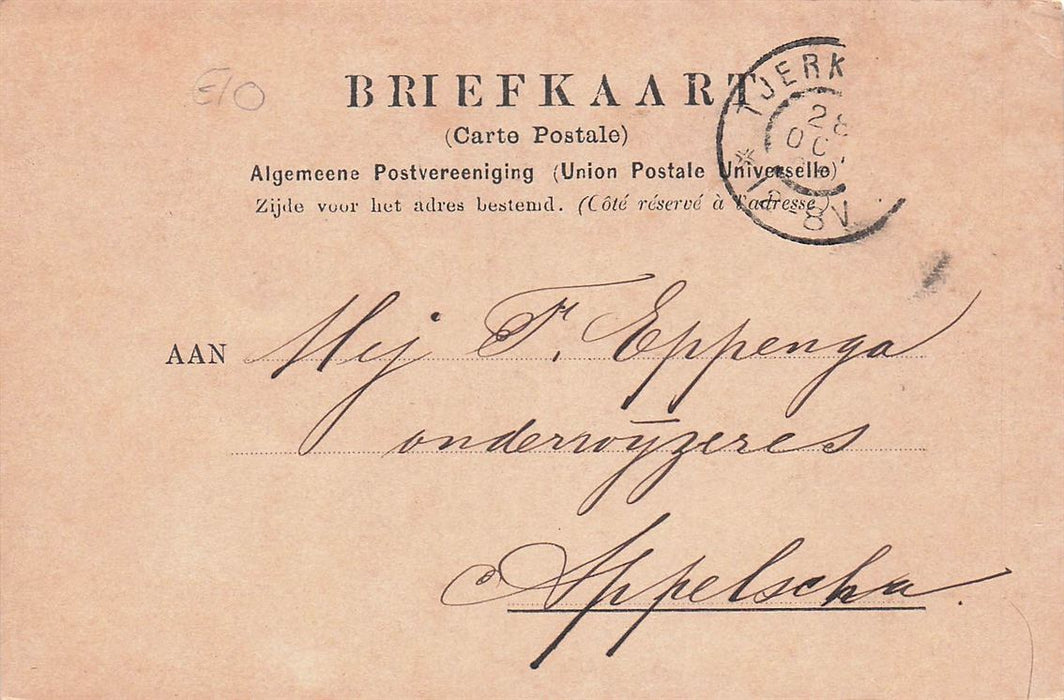 E10
BRIEFKAART
(Carte Postale)
Algemeene Postvereeniging (Union Postale Universelle)
Zijde voor het adres bestemd. (Côté réservé à l'adresse)
TJERK
28
OC
8V
AAN Mej F. Eppenga
onderwijzeres
Appelscha.